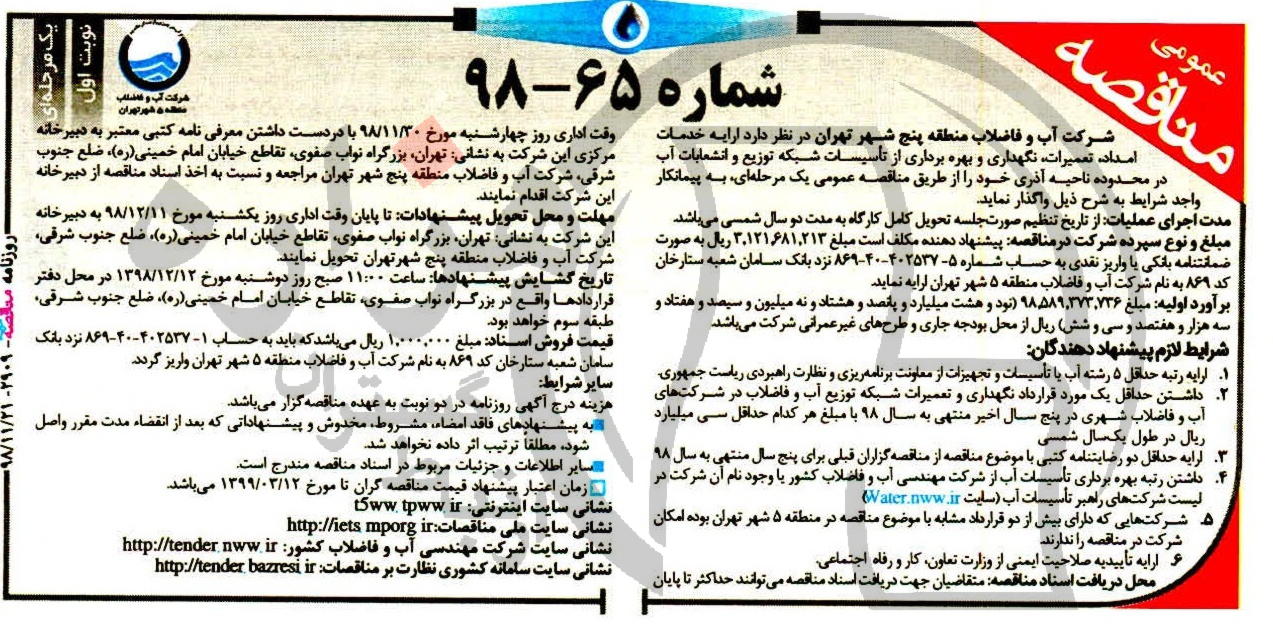 عمومی
مناقصه
شماره ۶۵-۹۸
نوبت اول
یک مرحله‌ای
شرکت آب و فاضلاب
منطقه ۵ شهر تهران
شـرکت آب و فاضلاب منطقه پنج شـهر تهران در نظر دارد ارایـه خدمـات
امـداد، تعمیرات، نگهداری و بهره برداری از تأسیسـات شـبکه توزیع و انشعابات آب
در محـدوده ناحیـه آذری خـود را از طریق مناقصـه عمومی یک مرحله‌ای، بـه پیمانکار
واجد شرایط به شرح ذیل واگذار نماید.
مدت اجرای عملیات: از تاریخ تنظیم صورت‌جلسه تحویل کامل کارگاه به مدت دو سال شمسی می‌باشد.
مبلغ و نوع سپرده شرکت در مناقصه: پیشنهاد دهنده مکلف است مبلغ ۳,۱۲۱,۶۸۱,۲۱۳ ریال به صورت
ضمانتنامه بانکی یا واریز نقدی به حساب شـماره ۵-۴۰۲۵۳۷-۴۰-۸۶۹ نزد بانک سـامان شعبه ستارخان
کد ۸۶۹ به نام شرکت آب و فاضلاب منطقه ۵ شهر تهران ارایه نماید.
برآورد اولیه: مبلغ ۹۸,۵۸۹,۳۷۳,۷۳۶ (نود و هشت میلیارد و پانصد و هشتاد و نه میلیون و سیصد و هفتاد و
سه هزار و هفتصد و سی و شش) ریال از محل بودجه جاری و طرح‌های غیرعمرانی شرکت می‌باشد.
شرایط لازم پیشنهاد دهندگان:
۱. ارایه رتبه حداقل ۵ رشته آب یا تأسیسات و تجهیزات از معاونت برنامه‌ریزی و نظارت راهبردی ریاست جمهوری.
۲. داشـتن حداقل یک مورد قرارداد نگهداری و تعمیرات شـبکه توزیع آب و فاضلاب در شـرکت‌های
آب و فاضلاب شـهری در پنج سـال اخیر منتهی به سـال ۹۸ با مبلغ هر کدام حداقل سـی میلیارد
ریال در طول یک‌سال شمسی
۳. ارایه حداقل دو رضایتنامه کتبی با موضوع مناقصه از مناقصه‌گزاران قبلی برای پنج سال منتهی به سال ۹۸
۴. داشتن رتبه بهره برداری تأسیسات آب از شرکت مهندسی آب و فاضلاب کشور یا وجود نام آن شرکت در
لیست شرکت‌های راهبر تأسیسات آب (سایت Water.nww.ir)
۵. شـرکت‌هایی که دارای بیش از دو قرارداد مشابه با موضوع مناقصه در منطقه ۵ شهر تهران بوده امکان
شرکت در مناقصه را ندارند.
۶. ارایه تأییدیه صلاحیت ایمنی از وزارت تعاون، کار و رفاه اجتماعی.
محل دریافت اسناد مناقصه: متقاضیان جهت دریافت اسناد مناقصه می‌توانند حداکثر تا پایان
وقت اداری روز چهارشـنبه مورخ ۹۸/۱۱/۳۰ با دردست داشتن معرفی نامه کتبی معتبر به دبیرخانه
مرکزی این شرکت به نشانی: تهران، بزرگراه نواب صفوی، تقاطع خیابان امام خمینی(ره)، ضلع جنوب
شرقی، شرکت آب و فاضلاب منطقه پنج شهر تهران مراجعه و نسبت به اخذ اسناد مناقصه از دبیرخانه
این شرکت اقدام نمایند.
مهلت و محل تحویل پیشـنهادات: تا پایان وقت اداری روز یکشـنبه مورخ ۹۸/۱۲/۱۱ به دبیرخانه
این شرکت به نشانی: تهران، بزرگراه نواب صفوی، تقاطع خیابان امام خمینی(ره)، ضلع جنوب شرقی،
شرکت آب و فاضلاب منطقه پنج شهرتهران تحویل نمایند.
تاریخ گشـایش پیشـنهادها: ساعت ۱۱:۰۰ صبح روز دوشـنبه مورخ ۱۳۹۸/۱۲/۱۲ در محل دفتر
قراردادهـا واقـع در بزرگـراه نواب صفـوی، تقاطـع خیابـان امـام خمینی(ره)، ضلع جنوب شـرقی،
طبقه سوم خواهد بود.
قیمت فروش اسـناد: مبلغ ۱,۰۰۰,۰۰۰ ریال می‌باشدکه باید به حسـاب ۱-۴۰۲۵۳۷-۴۰-۸۶۹ نزد بانک
سامان شعبه ستارخان کد ۸۶۹ به نام شرکت آب و فاضلاب منطقه ۵ شهر تهران واریز گردد.
سایر شرایط:
هزینه درج آگهی روزنامه در دو نوبت به عهده مناقصه‌گزار می‌باشد.
به پیشـنهادهای فاقد امضاء، مشـروط، مخدوش و پیشـنهاداتی که بعد از انقضاء مدت مقرر واصل
شود، مطلقاً ترتیب اثر داده نخواهد شد.
سایر اطلاعات و جزئیات مربوط در اسناد مناقصه مندرج است.
زمان اعتبار پیشنهاد قیمت مناقصه گران تا مورخ ۱۳۹۹/۰۳/۱۲ می‌باشد.
نشانی سایت اینترنتی: t5ww.tpww.ir
نشانی سایت ملی مناقصات: http://iets.mporg.ir
نشانی سایت شرکت مهندسی آب و فاضلاب کشور: http://tender.nww.ir
نشانی سایت سامانه کشوری نظارت بر مناقصات: http://tender.bazresi.ir
روزنامه مناقصه - ۲۹۰۹ - ۹۸/۱۱/۲۱